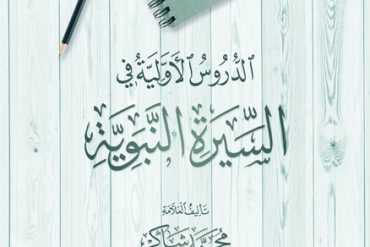 الدُّرُوسُ الأَوَّلِيَّةُ فِي
السِّيرَةِ النَّبَوِيَّةِ
تَأْلِيفُ العَلَّامَةِ
مُحَمَّد شَاكِر